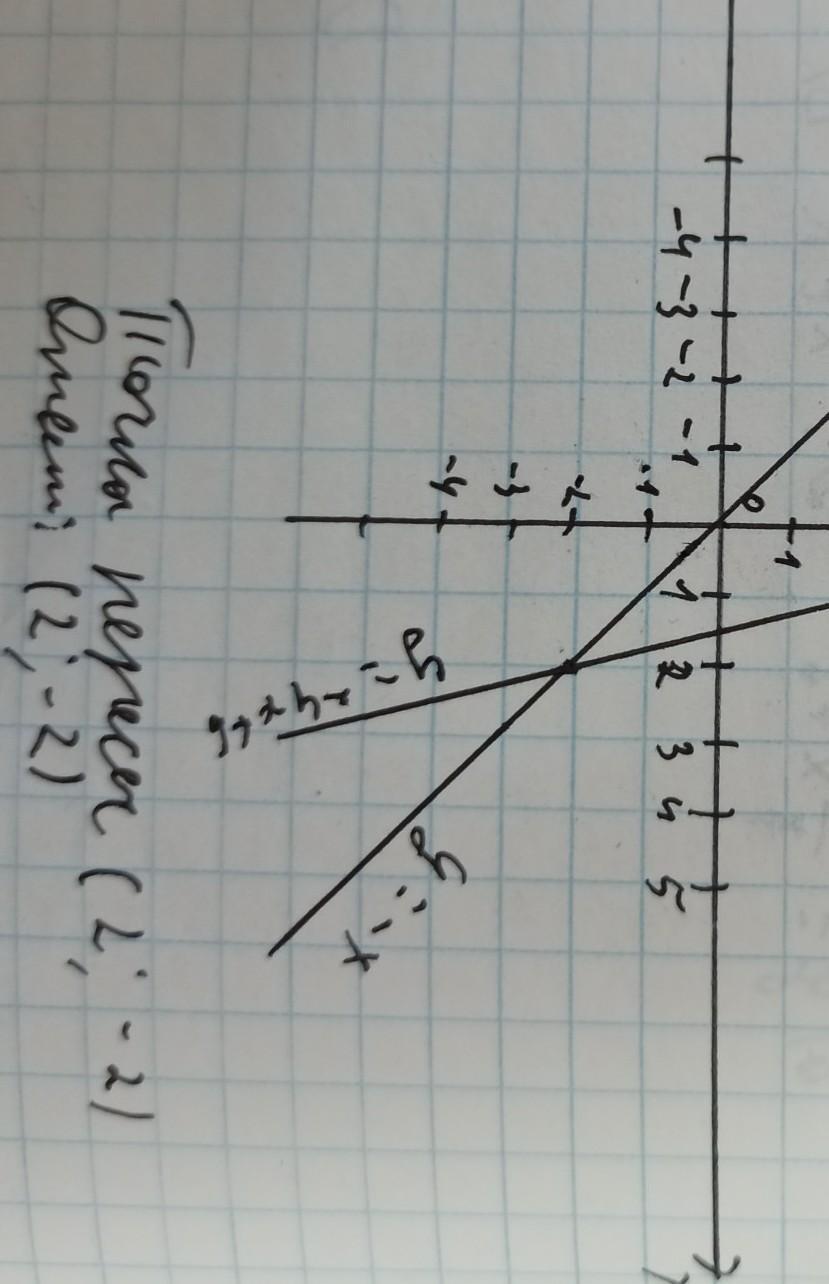 1
0
-4 -3 -2 -1 1 2 3 4 5
-1
-2
-3
-4
y = -4x+6
y = -x
Точка пересеч (2; -2)
Ответ: (2; -2)